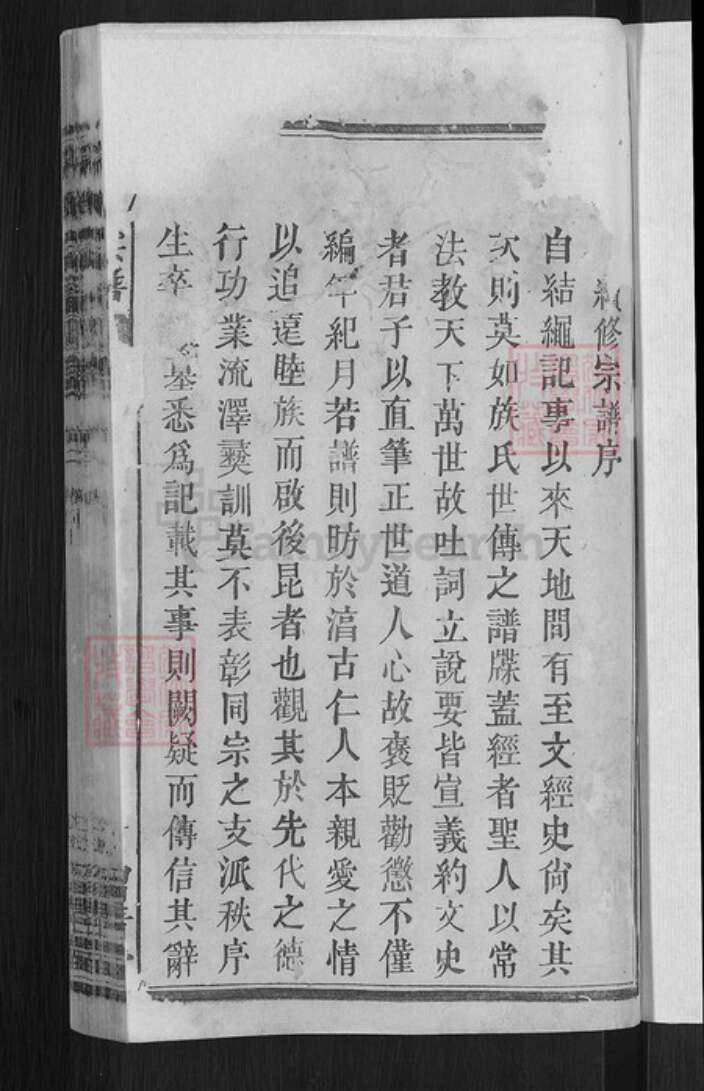 續修宗譜序
自結繩記事以來天地間有至文經史尙矣其
次則莫如族氏世傳之譜牒蓋經者聖人以常
法教天下萬世故吐詞立說要皆宣義約文史
者君子以直筆正世道人心故褒貶勸懲不僅
編年紀月若譜則昉於
古仁人本親愛之情
以追遠睦族而啟後昆者也觀其於先代之德
行功業流澤彛訓莫不表彰同宗之支派秩序
生卒
墓悉爲記載其事則闕疑而傳信其辭
宗譜
FamilySearch